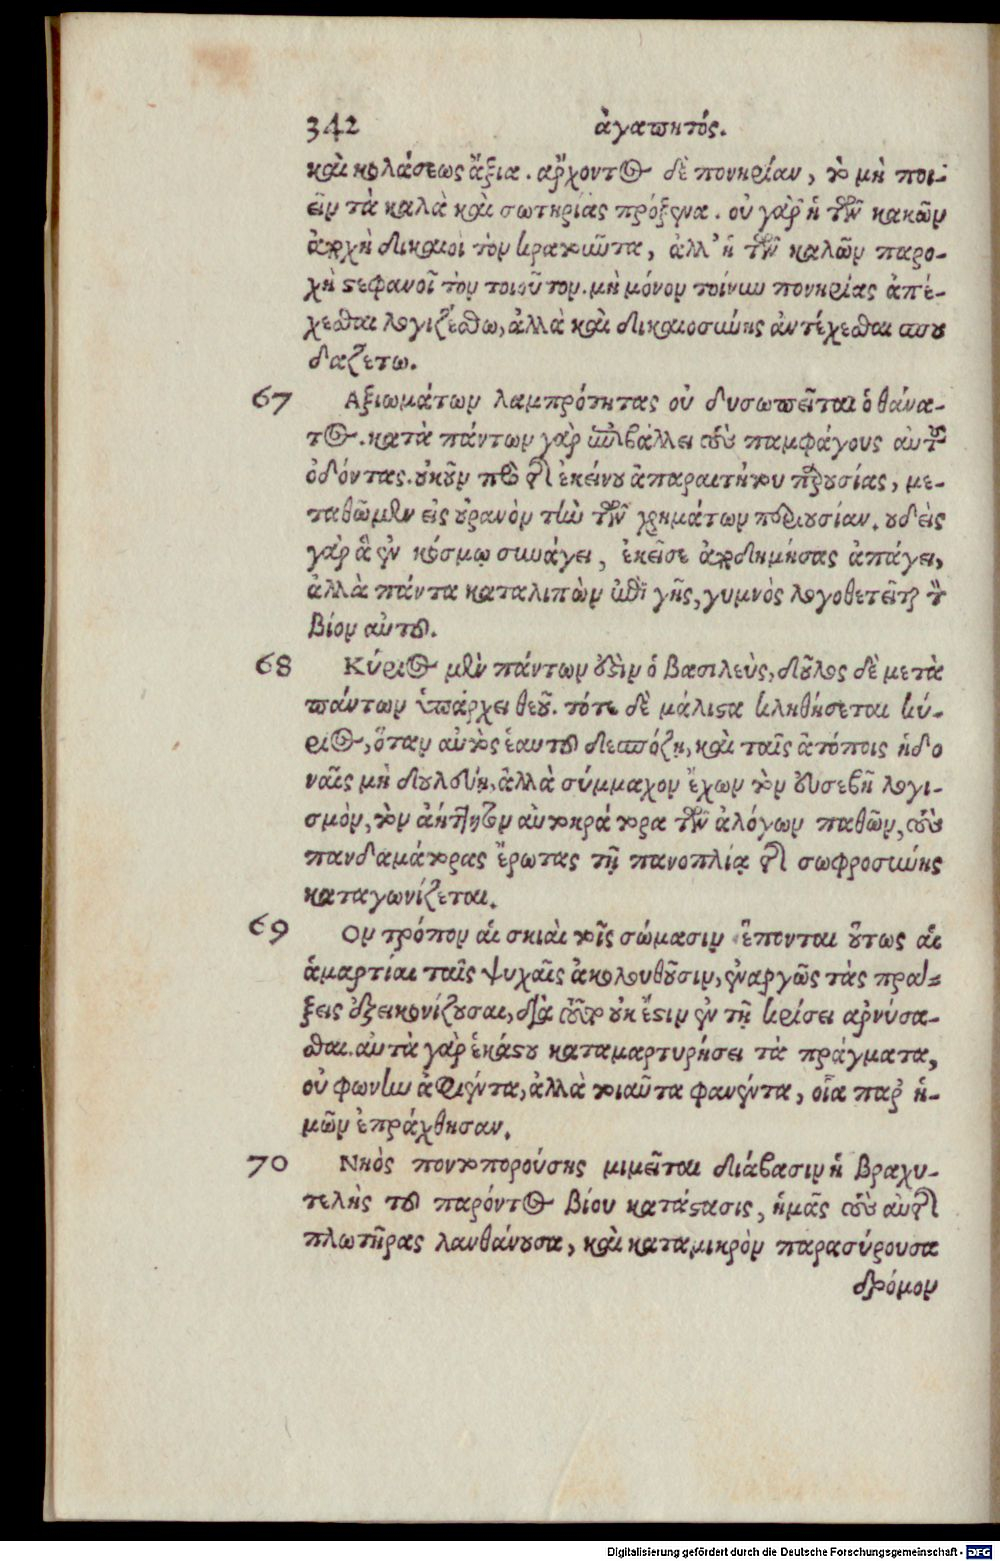 342 ἀγαπητός.
καὶ κολάσεως ἄξια. ἄρχοντος δὲ πονηρίαν, τὸ μὴ ποι-
εῖν τὰ καλὰ καὶ σωτηρίας πρόξενα. οὐ γὰρ ἡ τῶν κακῶν
ἀρχὴ δικαιοῖ τὸν κρατοῦντα, ἀλλ' ἡ τῶν καλῶν παρο-
χὴ στεφανοῖ τὸν τοιοῦτον. μὴ μόνον τοίνυν πονηρίας ἀπέ-
χεσθαι λογιζέσθω, ἀλλὰ καὶ δικαιοσύνης ἀντέχεσθαι σπου
δαζέτω.
67 Αξιωμάτων λαμπρότητας οὐ δυσωπεῖται ὁ θάνα-
τος. κατὰ πάντων γὰρ ἐπιβάλλει τοὺς παμφάγους αὐτοῦ
ὀδόντας. οὐκοῦν πρὸ τῆς ἐκείνου ἀπαραιτήτου παρουσίας, με-
ταθῶμεν εἰς οὐρανὸν τὴν τῶν χρημάτων περιουσίαν. οὐδεὶς
γὰρ ἃ ἐν κόσμῳ συνάγει, ἐκεῖσε ἀποδημήσας ἀπάγει,
ἀλλὰ πάντα καταλιπὼν ἐπὶ γῆς, γυμνὸς λογοθετεῖται τὸν
βίον αὐτοῦ.
68 Κύριος μὲν πάντων ἐστὶν ὁ βασιλεὺς, δοῦλος δὲ μετὰ
πάντων ὑπάρχει θεοῦ. τότε δὲ μάλιστα κληθήσεται κύ-
ριος, ὅταν αὐτὸς ἑαυτοῦ δεσπόζῃ, καὶ ταῖς ἀτόποις ἡδο
ναῖς μὴ δουλεύῃ, ἀλλὰ σύμμαχον ἔχων τὸν εὐσεβῆ λογι-
σμὸν, τὸν ἀήττητον αὐτοκράτορα τῶν ἀλόγων παθῶν, τοὺς
πανδαμάτορας ἔρωτας τῇ πανοπλίᾳ τῆς σωφροσύνης
καταγωνίζεται.
69 Ον τρόπον αἱ σκιαὶ τοῖς σώμασιν ἕπονται οὕτως αἱ
ἁμαρτίαι ταῖς ψυχαῖς ἀκολουθοῦσιν, ἐναργῶς τὰς πρά-
ξεις ἐξεικονίζουσαι, διὰ τοῦτο οὐκ ἔστιν ἐν τῇ κρίσει ἀρνήσα-
σθαι. αὐτὰ γὰρ ἑκάστου καταμαρτυρήσει τὰ πράγματα,
οὐ φωνὴν ἀφιέντα, ἀλλὰ τοιαῦτα φανέντα, οἷα παρ' ἡ-
μῶν ἐπράχθησαν.
70 Νηὸς ποντοπορούσης μιμεῖται διάβασιν ἡ βραχυ-
τελὴς τοῦ παρόντος βίου κατάστασις, ἡμᾶς τοὺς αὐτῆς
πλωτῆρας λανθάνουσα, καὶ καταμικρὸν παρασύρουσα
δρόμον
Digitalisierung gefördert durch die Deutsche Forschungsgemeinschaft - DFG